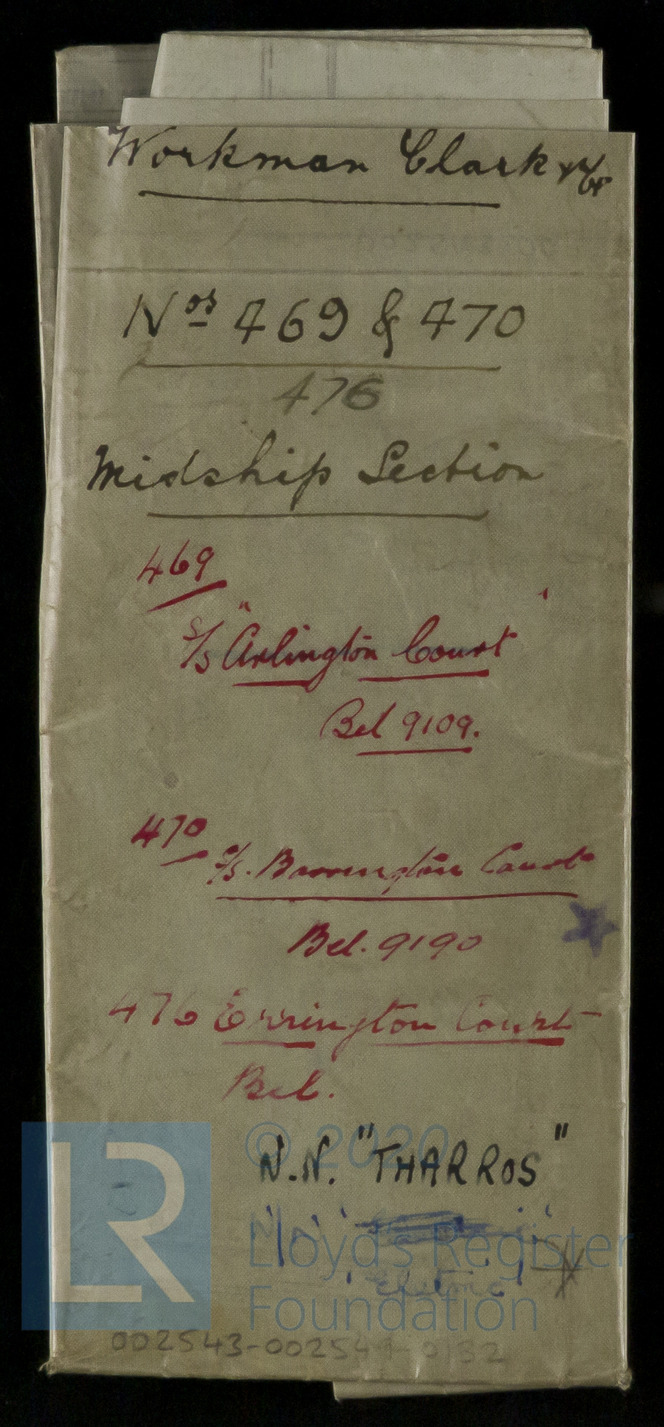 Workman Clark & Co
Nos 469 & 470
476
Midship Section
469
S/S "Arlington Court"
Bel 9109.
470
S/S. Barrington Court
Bel. 9190
476 Errington Court
Bel.
N.N. "THARROS"
© 2020
LR
Lloyd's Register
Foundation
002543-00254
0132